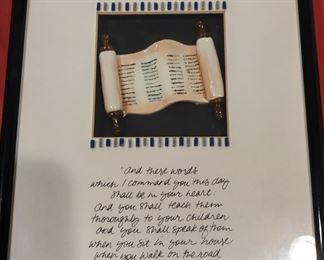 "And these words
which I command you this day
Shall be in your heart.
And you shall teach them
thoroughly to your children
and you shall speak of them
when you sit in your house
when you walk on the road